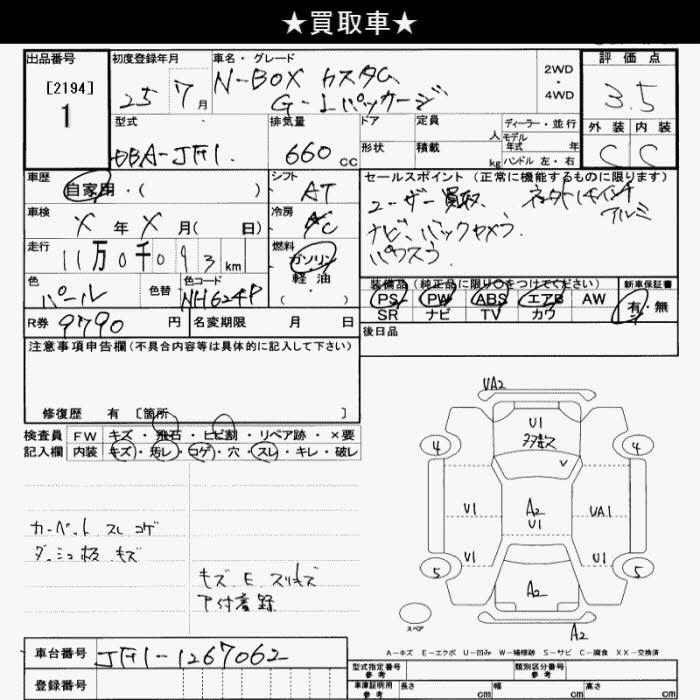 ★買取車★
出品番号 初度登録年月 車名・グレード 評価点
[2194] 25 7月 N-BOX カスタム 2WD・4WD 3.5
1 G-Lパッケージ
型式 排気量 ドア 定員 人 ディーラー・並行 外装 内装
DBA-JF1. 660cc 形状 積載 kg モデル年式 年 C C
ハンドル 左・右
車歴 自家用・( ) シフト AT セールスポイント(正常に機能するものに限ります)
車検 X年X月(日) 冷房 AC ユーザー買取 社外14インチ
アルミ
走行 11万0千093km 燃料 ガソリン・軽油・( ) ナビ、バックカメラ、
色 パール 色替 色コード NH624P 装備品(純正品に限り○をつけてください) 新車保証書
PS PW ABS エアB AW 有・無
SR ナビ TV カワ
R券 9790円 名変期限 月 日 後日品
注意事項申告欄(不具合内容等は具体的に記入して下さい)
修復歴 有 [箇所 ]
検査員 FW キズ・飛石・ヒビ割・リペア跡・×要
記入欄 内装 キズ・汚レ・コゲ・穴・スレ・キレ・破レ
UA2
U1
多数ス
4 4
U1 A2 UA1
U1
U1 U1
5 A2 5
カーペット スレ コゲ
ダッシュ板 キズ
キズ E スリキズ
ア付着録
スペア A2
A-キズ E-エクボ U-凹み W-補修跡 S-サビ C-腐食 XX-交換済
車台番号 JF1-1267062 型式指定番号 参考 類別区分番号 参考
登録番号 車庫証明用 参考 長さ cm 幅 cm 高さ cm